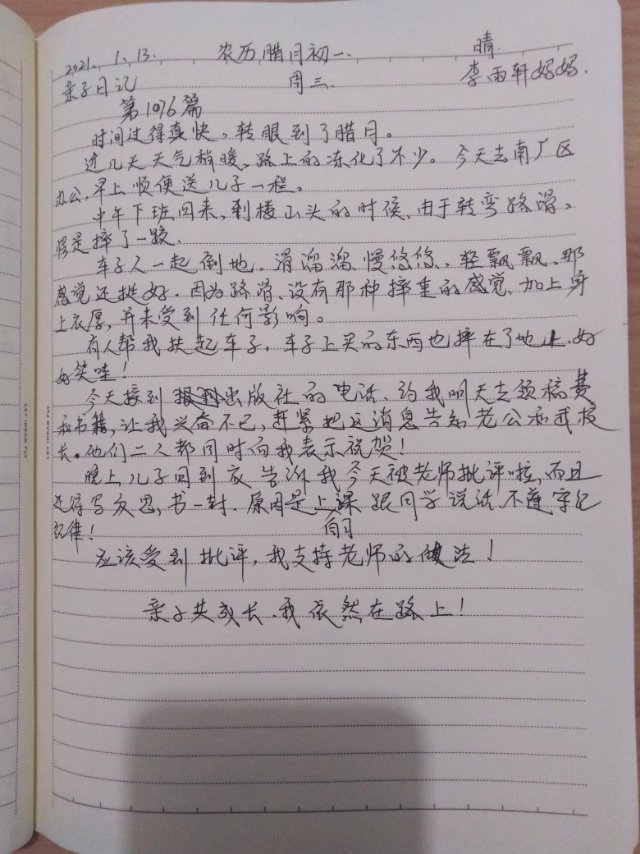 2021. 1. 13. 农历腊月初一. 晴
亲子日记 周三 李雨轩妈妈.
第1096篇
时间过得真快，转眼到了腊月。
近几天天气稍暖，路上的冻化了不少。今天去南厂区
办公，早上顺便送儿子一程。
中午下班回来，到楼山头的时候，由于转弯路滑，
愣是摔了一跤，
车子人一起倒地，滑溜溜、慢悠悠，轻飘飘，那
感觉还挺好，因为路滑、没有那种摔重的感觉，加上身
上衣厚，并未受到任何影响。
有人帮我扶起车子，车子上买的东西也摔在了地上，好
好笑哇！
今天接到出版社的电话、约我明天去领稿费
和书籍，让我兴奋不已，赶紧把这消息告知老公和我校
长。他们二人都同时向我表示祝贺！
晚上儿子回到家告诉我今天被老师批评啦，而且
还得写反思，书一封。原因是上课跟同学说话，不遵守纪
自习
律！
应该受到批评，我支持老师的做法！
亲子共成长，我依然在路上！